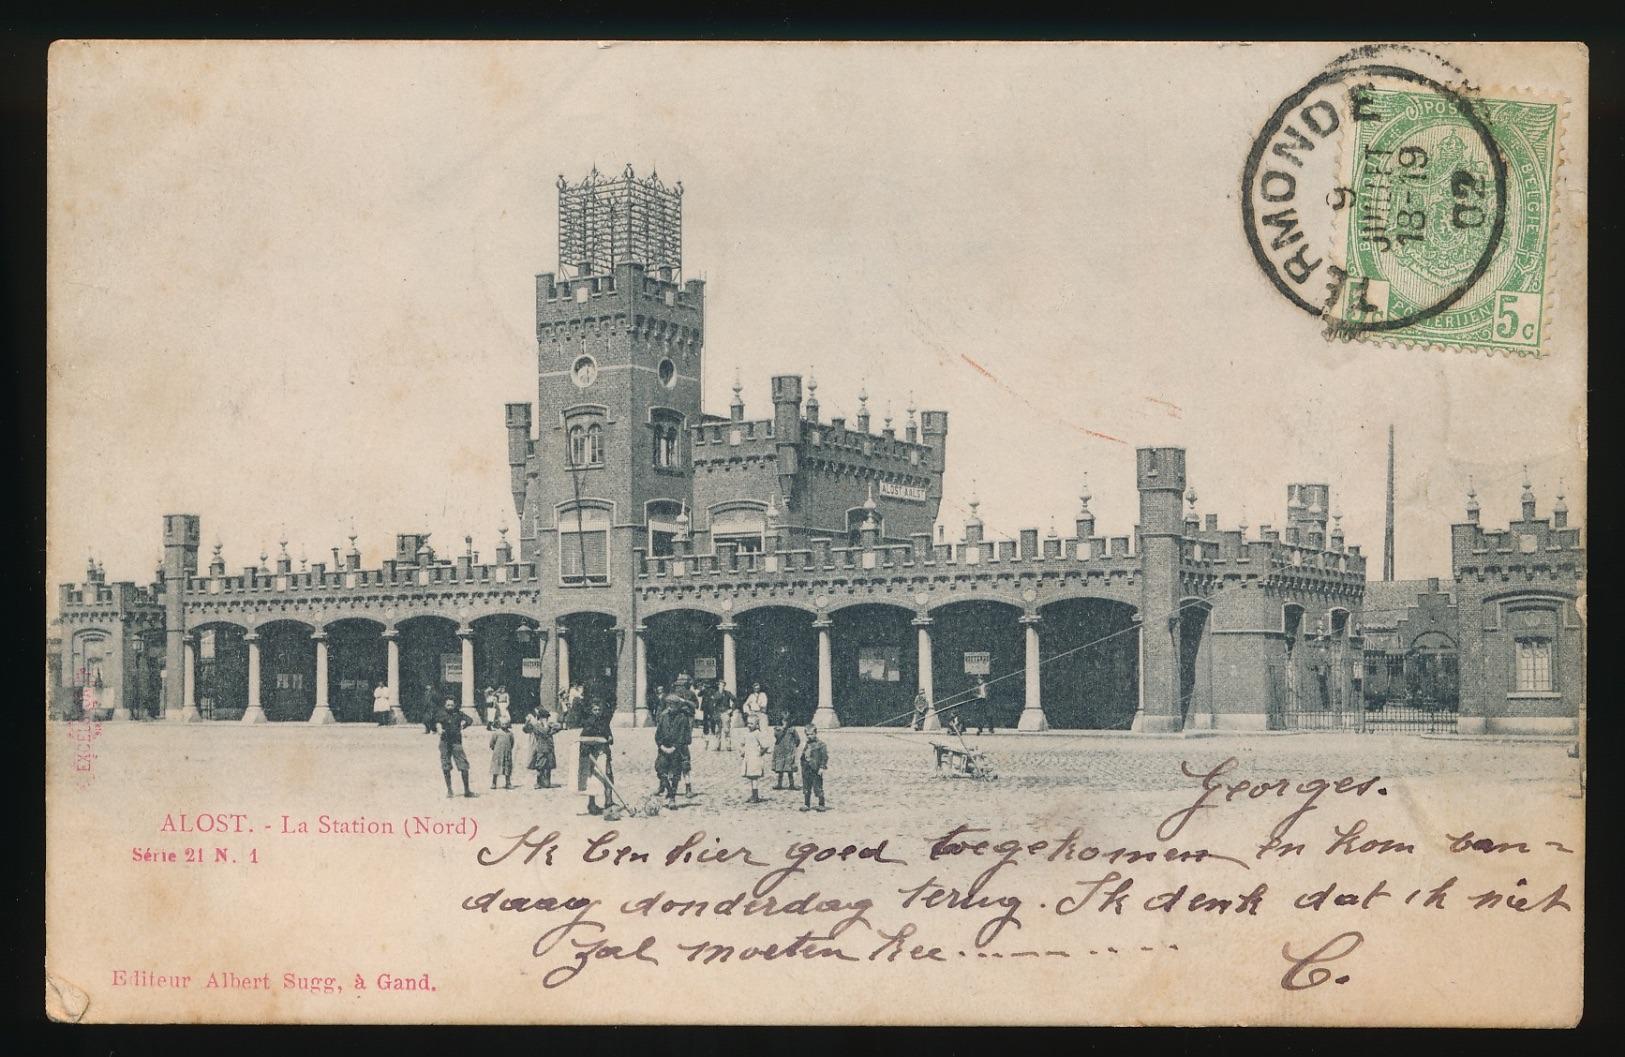 TERMONDE
9
JUILLET
18-19
02
POS
BELGIE
POSTERIJEN
5c
ALOST AALST
EXCELSIOR
Georges.
ALOST. - La Station (Nord)
Série 21 N. 1
Ik ben hier goed toegekomen en kom van=
daag donderdag terug. Ik denk dat ik niet
zal moeten hee.............
C.
Editeur Albert Sugg, à Gand.